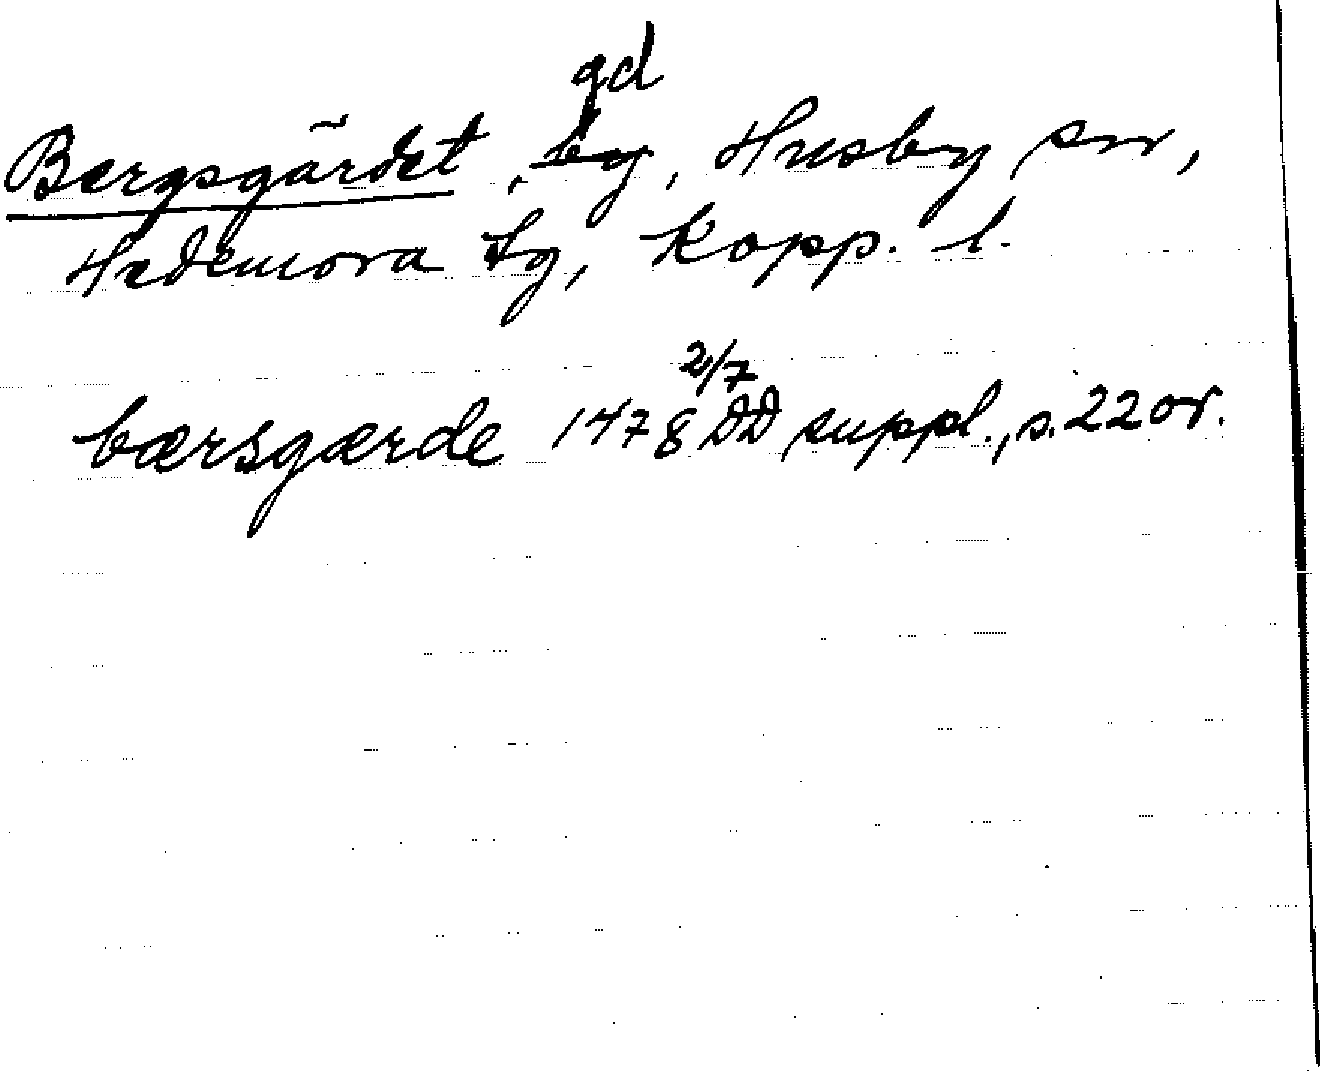 gd
Bergsgärdet, by, Husby sn,
Hedemora tg, Kopp. l.
2/7
bærsgærde 1478 DD suppl., s. 22 or.